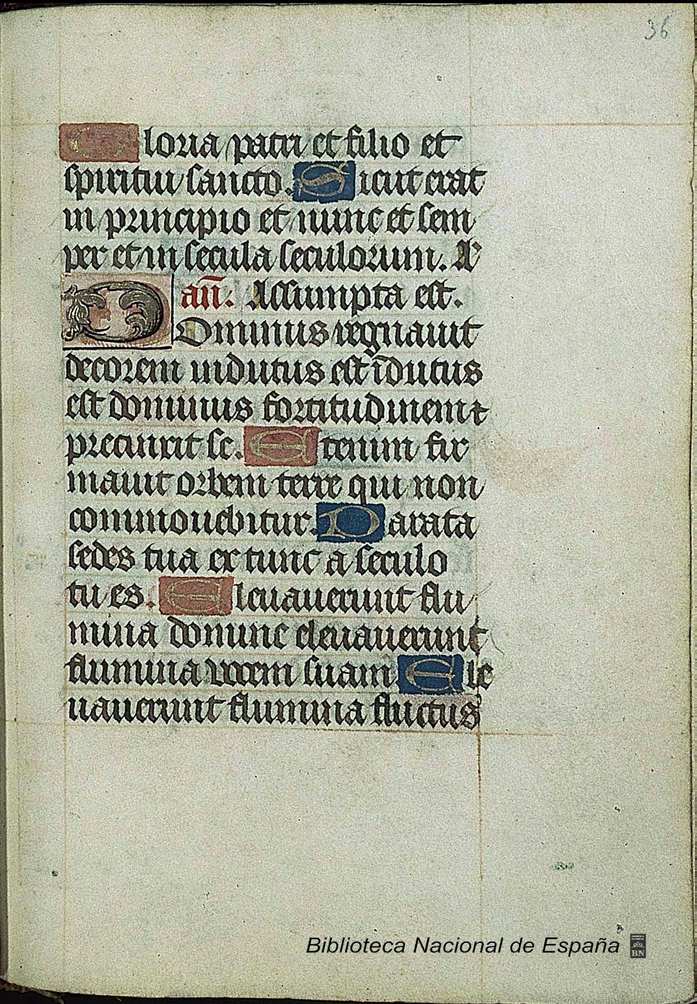 36
Gloria patri et filio et
spiritui sancto. Sicut erat
in principio et nunc et sem
per et in secula seculorum. A
añ. Assumpta est.
Dominus regnauit
decorem indutus est īdutus
est dominus fortitudinem ⁊
precinxit se. Etenim fir
mauit orbem terre qui non
commouebitur. Parata
sedes tua ex tunc a seculo
tu es. Eleuauerunt flu
mina domine eleuauerunt
flumina vocem suam Ele
uauerunt flumina fluctus
Biblioteca Nacional de España
BN